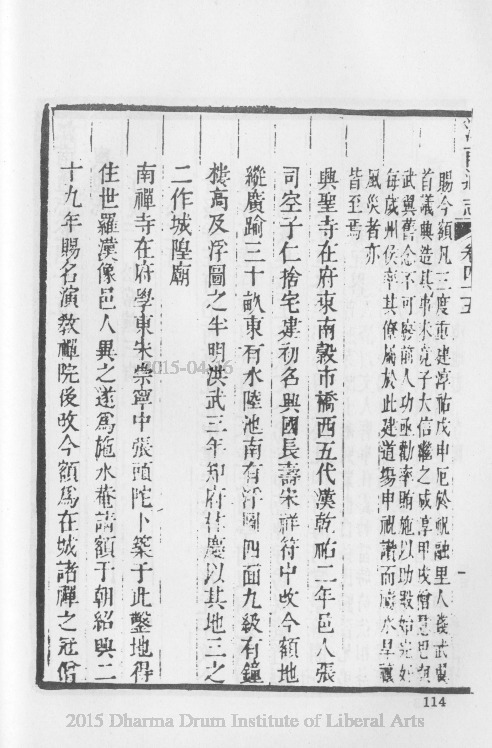 江南通志 卷四十五
賜今額凡三度重建淳祐戊申厄於祝融里人錢武翼
首議典造其事未竟子大信繼之咸淳甲戌僧
武與舊合不可廢前人功亟勸率賄施以助殿始完好
每歲州侯率其僚屬於此建道場申祝讚而凡水旱禳
風災者亦
皆至焉
興聖寺在府東南穀市橋西五代漢乾祐二年邑人張
司空子仁捨宅建初名興國長壽宋祥符中改今額地
縱廣踰三十畝東有水陸池南有浮圖四面九級有鐘
樓高及浮圖之半明洪武三年知府林慶以其地三之
二作城隍廟
南禪寺在府學東宋崇寧中張頭陀卜築于此鑿地得
住世羅漢像邑人異之遂爲施水菴請額于朝紹興二
十九年賜名演教禪院後改今額爲在城諸禪之冠僧
114
2015-04-16
2015 Dharma Drum Institute of Liberal Arts